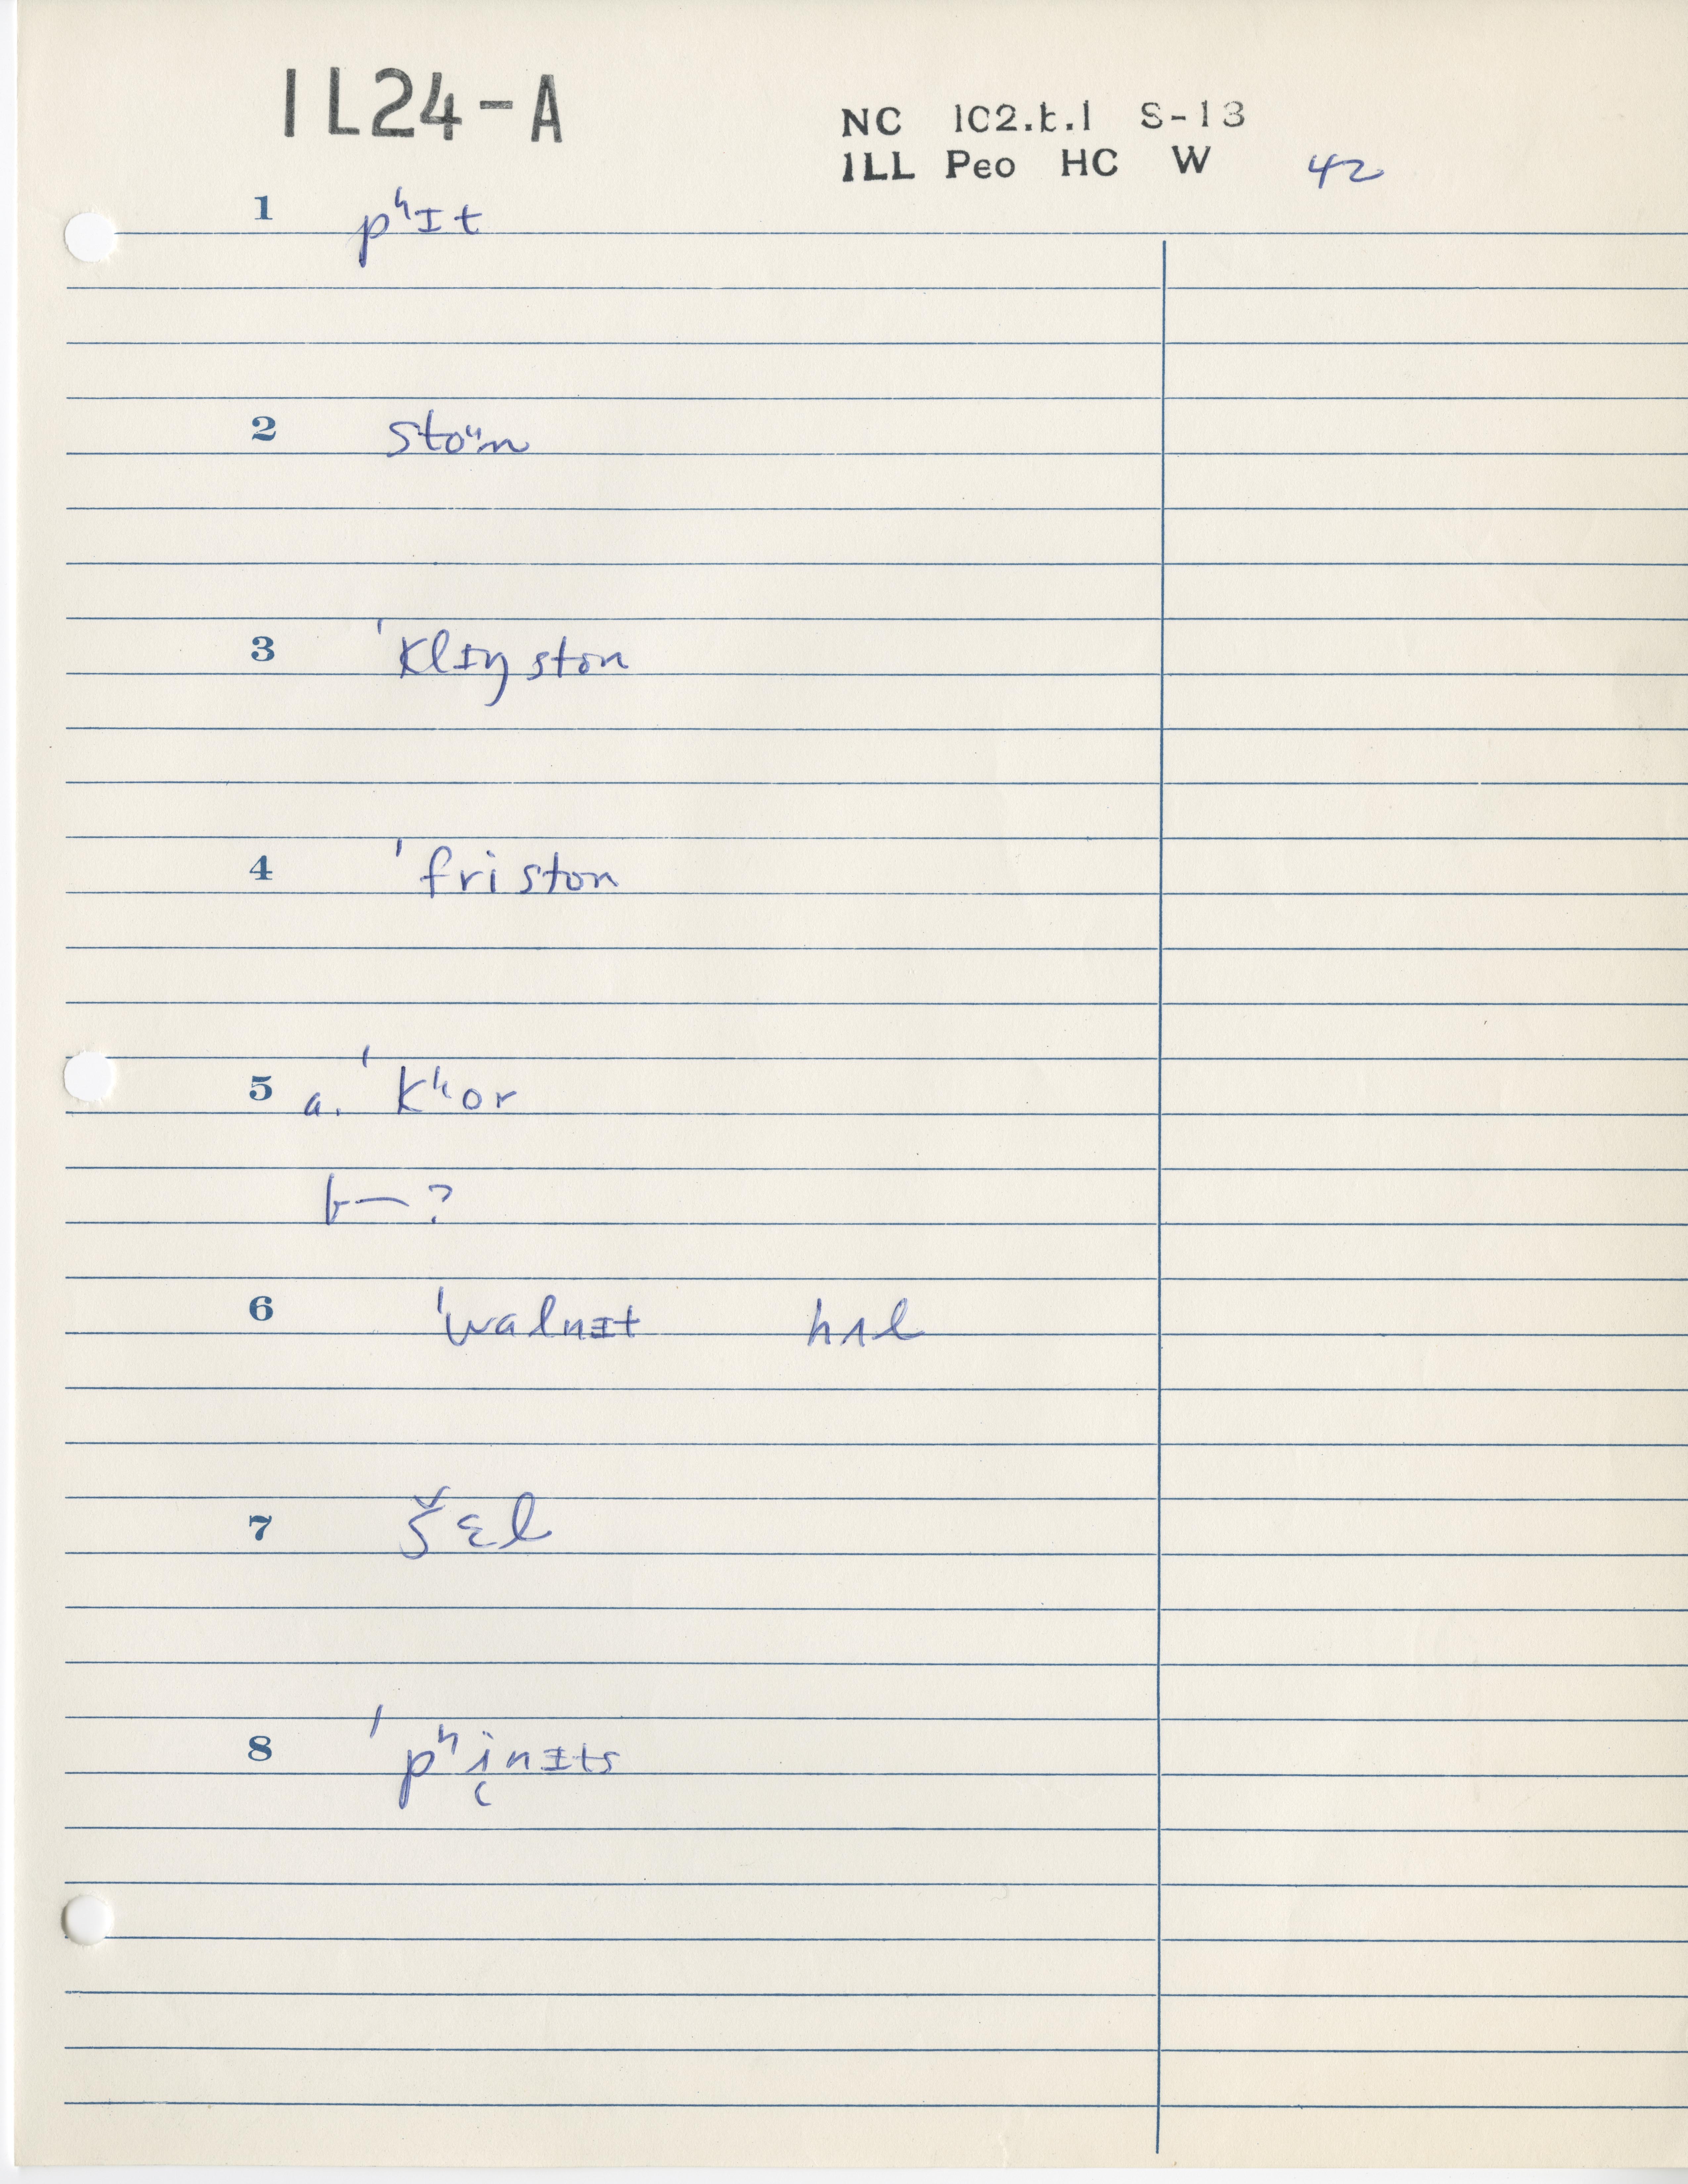 IL24-A
NC 102.t.1 S-13
ILL Peo HC W 42
1 pʰɪt
2 stoᵘn
3 ˈklɪŋ ston
4 ˈfri ston
5 a. ˈkʰor
b — ?
6 ˈwalnɪt hʌl
7 šɛl
8 ˈpʰi̜nɪts